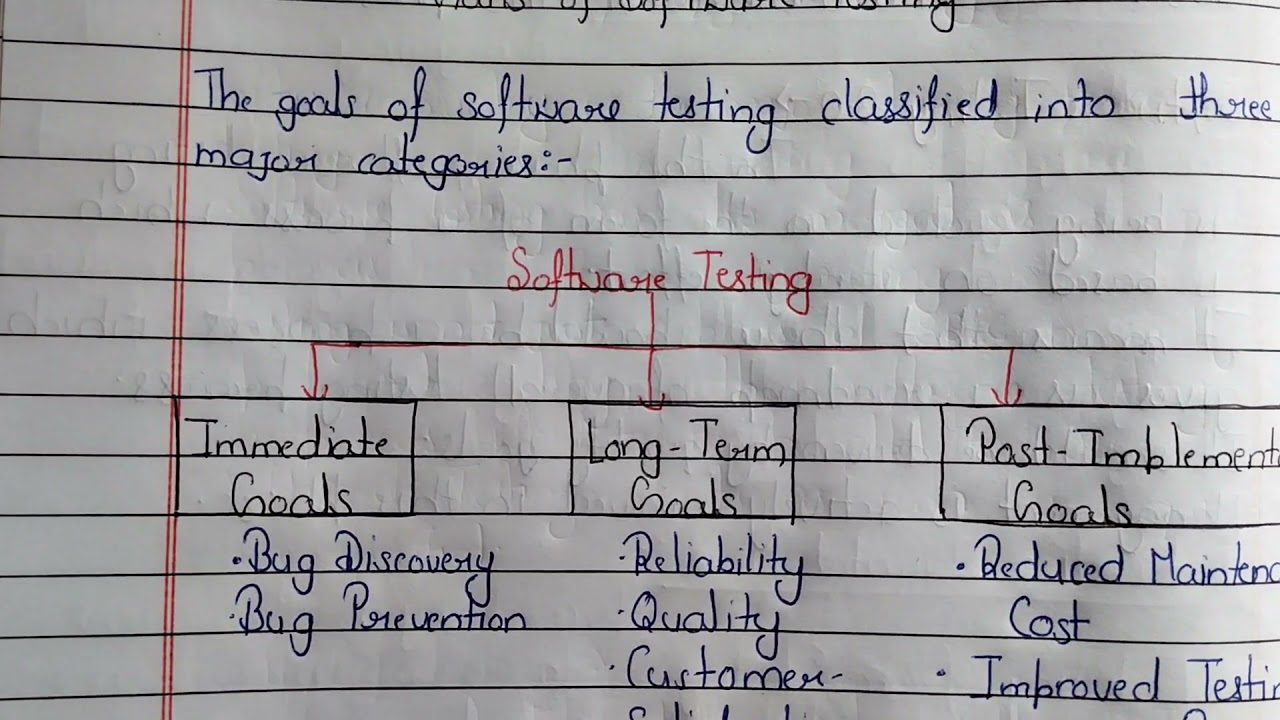 of Software Testing
The goals of software testing classified into three
major categories:-
Software Testing
Immediate Goals
Long-Term Goals
Post-Implement
Goals
• Bug Discovery
• Bug Prevention
• Reliability
• Quality
• Customer-
• Reduced Maintenc
Cost
• Improved Testin